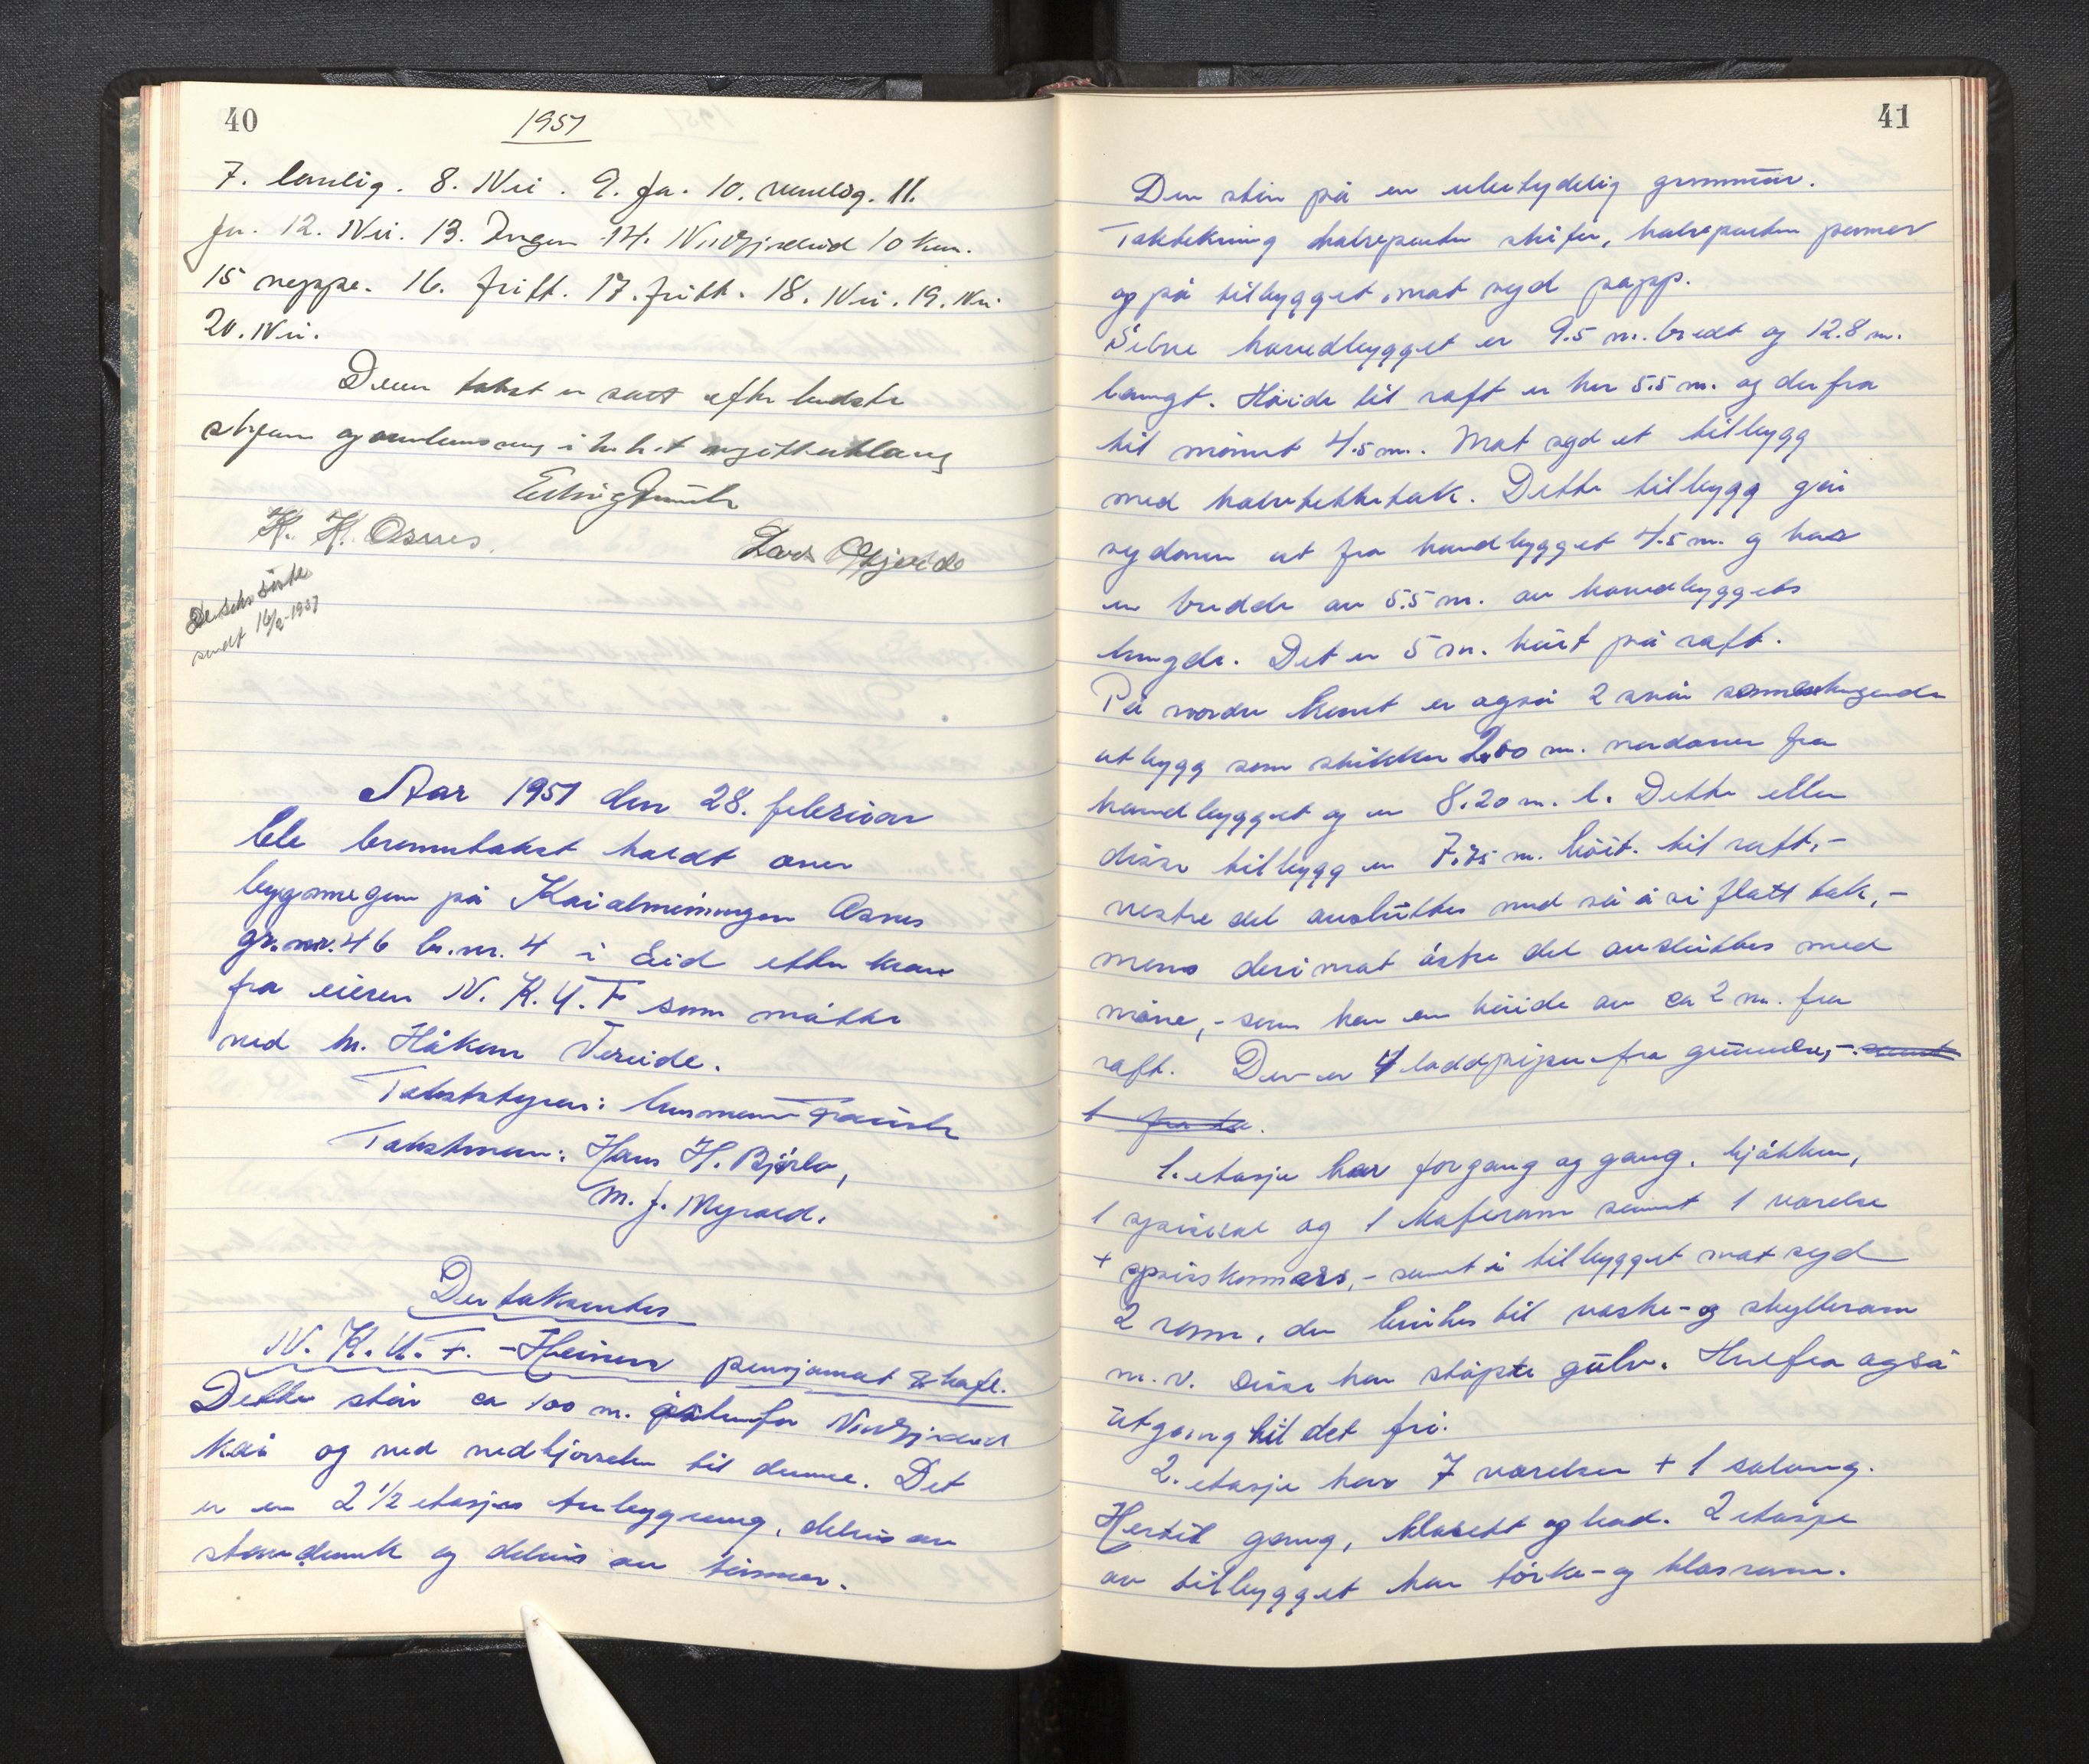 40
1957
7. lovlig. 8. Nei. 9. Ja. 10. vanlig. 11.
Ja. 12. Nei. 13. Ingen 14. Nordfjordeid 10 km.
15 neppe. 16. fritt. 17. fritt. 18. Nei. 19. Nei.
20. Nei.
Denne takst er satt efter bedste
skjønn og i
H. H. Osnes. Lars Gjerde
sendt 16/2-1957
Aar 1957 den 28. februar
ble branntakst holdt over
bygsmegen på Kaialmeningen Osnes
gr.nr. 46 br.nr. 4 i Eid etter krav
fra eieren N.K.U.F som møtte
ved hr. Håkon Vereide.
Takststyrer: lensmann
Takstmenn: Hans H. Bjørlo,
M. J. Myrold.
Der takserertes
N.K.U.F. -Heimen pensjonat & kafe.
Dette står ca 100 m. østenfor Nordfjordeid
kai og ved nedkjørselen til denne. Det
er en 2 1/2 etasjes trebygning, delvis av
stenderverk og delvis av tømmer.
41
Den står på en ubetydelig grunnmur.
Taktekning halvparten skifer, halvparten panner
og på tilbygget mot syd papp.
Selve hovedbygget er 9.5 m. bredt og 12.8 m.
langt. Høide til raft er her 5.5 m. og derfra
til mønet 4.5 m. Mot syd et tilbygg
med halvtekketak. Dette tilbygg går
sydover ut fra hovedbygget 4.5 m. og har
en bredde av 5.5 m. av hovedbyggets
lengde. Det er 5 m. høit på raft.
På nordre kant er også 2 små sammenhengende
utbygg som stikker 2.80 m. nordover fra
hovedbygget og er 8.20 m. l. Dette eller
disse tilbygg er 7.75 m. høit. til raft,-
vestre del avsluttes med så å si flatt tak,-
mens derimot østre del avsluttes med
møne,- som har en høide av ca 2 m. fra
raft. Der er 4 loddpiper fra grunnen,- samt
1 fra
1. etasje har forgang og gang, kjøkken,
1 spisesal og 1 kaferom samt 1 værelse
+ spiskammers,- samt i tilbygget mot syd
2 rom, der brukes til vaske- og skyllerom
m.v. Disse har støpte gulv. Herfra også
utgang til det fri.
2. etasje har 7 værelser + 1 salong.
Hertil gang, klosett og bad. 2 etasje
av tilbygget har tørke- og klosrom.